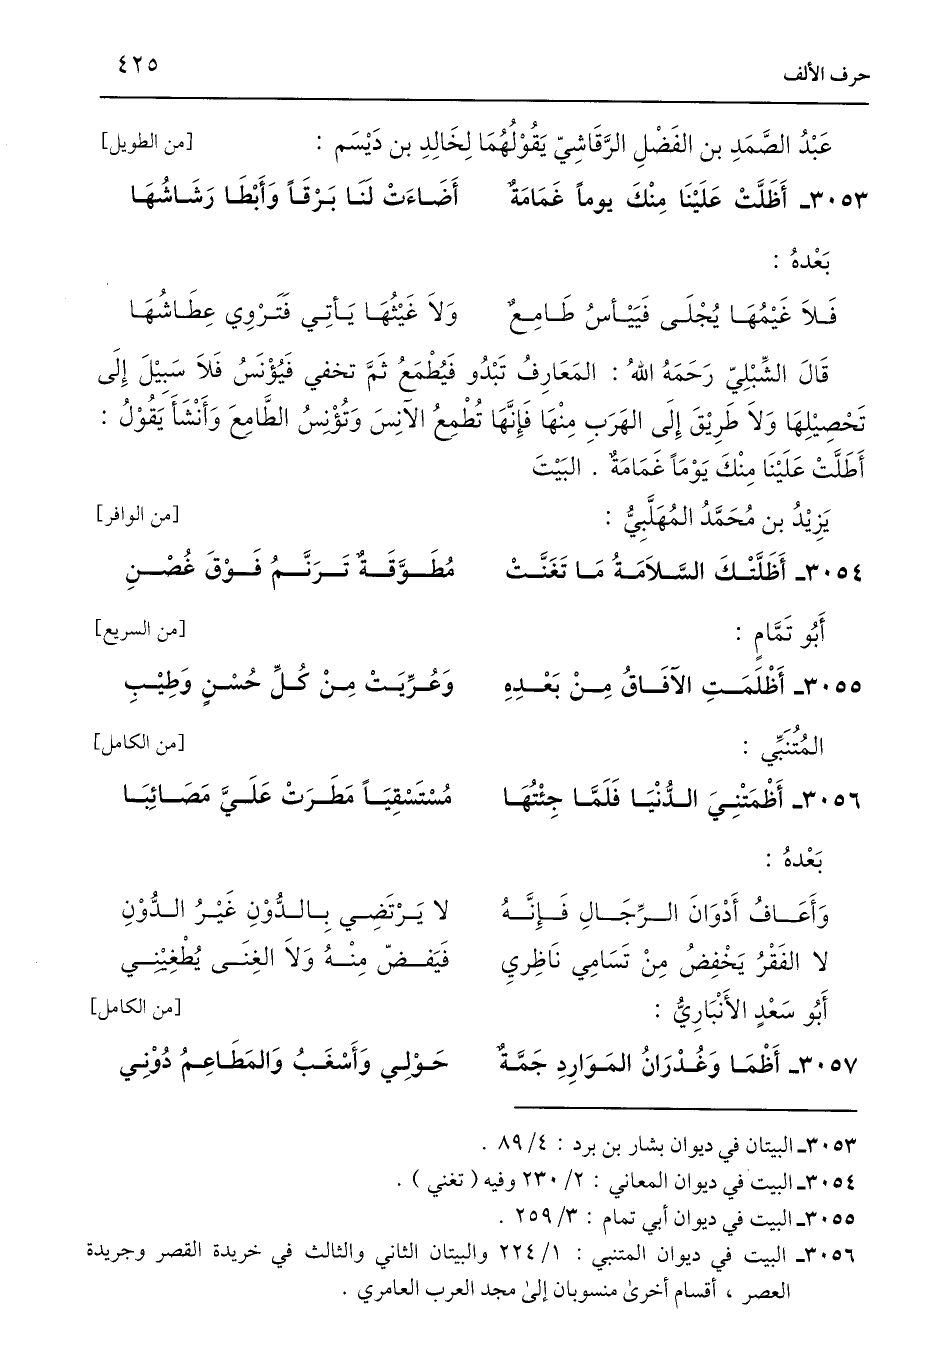 حرف الألف ٤٢٥
عَبْدُ الصَّمَدِ بن الفَضْلِ الرَّقَاشِيّ يَقُوْلُهُمَا لِخَالِدِ بن دَيْسَم : [من الطويل]
٣٠٥٣ـ أَظَلَّتْ عَلَيْنَا مِنْكَ يوماً غَمَامَةٌ أَضَاءَتْ لَنَا بَرْقَاً وَأَبْطَا رَشَاشُهَا
بَعْدهُ :
فَلاَ غَيْمُهَا يُجْلَى فَيَيْأَسُ طَامِعٌ وَلاَ غَيْثُهَا يَأتِي فَتَرْوِي عِطَاشُهَا
قَالَ الشِّبْلِيّ رَحَمَهُ اللهُ : المَعَارِفُ تَبْدُو فَيُطْمَعُ ثَمَّ تخفي فَيُؤْنَسُ فَلاَ سَبِيْلَ إِلَى
تَحْصِيْلِهَا وَلاَ طَرِيْقَ إِلَى الهَرَبِ مِنْهَا فَإِنَّهَا تُطْمِعُ الآنِسَ وَتُؤْنِسُ الطَّامِعَ وَأَنْشَأَ يَقُوْلُ :
أَطَلَّتْ عَلَيْنَا مِنْكَ يَوْمَاً غَمَامَةٌ . البَيْتَ
يَزِيْدُ بن مُحَمَّدُ المُهَلَّبِيُّ : [من الوافر]
٣٠٥٤ـ أَظَلَّتْكَ السَّلاَمَةُ مَا تَغَنَّتْ مُطَوَّقَةٌ تَرَنَّمُ فَوْقَ غُصْنِ
أَبُو تَمَّامٍ : [من السريع]
٣٠٥٥ـ أَظْلَمَتِ الآفَاقُ مِنْ بَعْدِهِ وَعُرِّيَتْ مِنْ كُلِّ حُسْنٍ وَطِيْبِ
المُتُنَبِّي : [من الكامل]
٣٠٥٦ـ أَظْمَتْنِيَ الدُّنْيَا فَلَمَّا جِئْتُهَا مُسْتَسْقِيَاً مَطَرَتْ عَلَيَّ مَصَائِبَا
بَعْدهُ :
وَأَعَافُ أَدْوَانَ الرِّجَالِ فَإِنَّهُ لا يَرْتَضِي بِالدُّوْنِ غَيْرُ الدُّوْنِ
لا الفَقْرُ يَخْفِضُ مِنْ تَسَامِي نَاظِرِي فَيَغضّ مِنْهُ وَلاَ الغِنَى يُطْغِيْنِي
أَبُو سَعْدٍ الأَنْبَارِيُّ : [من الكامل]
٣٠٥٧ـ أَظْمَا وَغُدْرَانُ المَوَارِدِ جَمَّةٌ حَوْلِي وَأَسْغَبُ وَالمَطَاعِمُ دُوْنِي
٣٠٥٣ـ البيتان في ديوان بشار بن برد : ٤/ ٨٩ .
٣٠٥٤ـ البيت في ديوان المعاني : ٢/ ٢٣٠ وفيه ( تغني ) .
٣٠٥٥ـ البيت في ديوان أبي تمام : ٣/ ٢٥٩ .
٣٠٥٦ـ البيت في ديوان المتنبي : ١/ ٢٢٤ والبيتان الثاني والثالث في خريدة القصر وجريدة
العصر ، أقسام أخرىٰ منسوبان إلىٰ مجد العرب العامري .